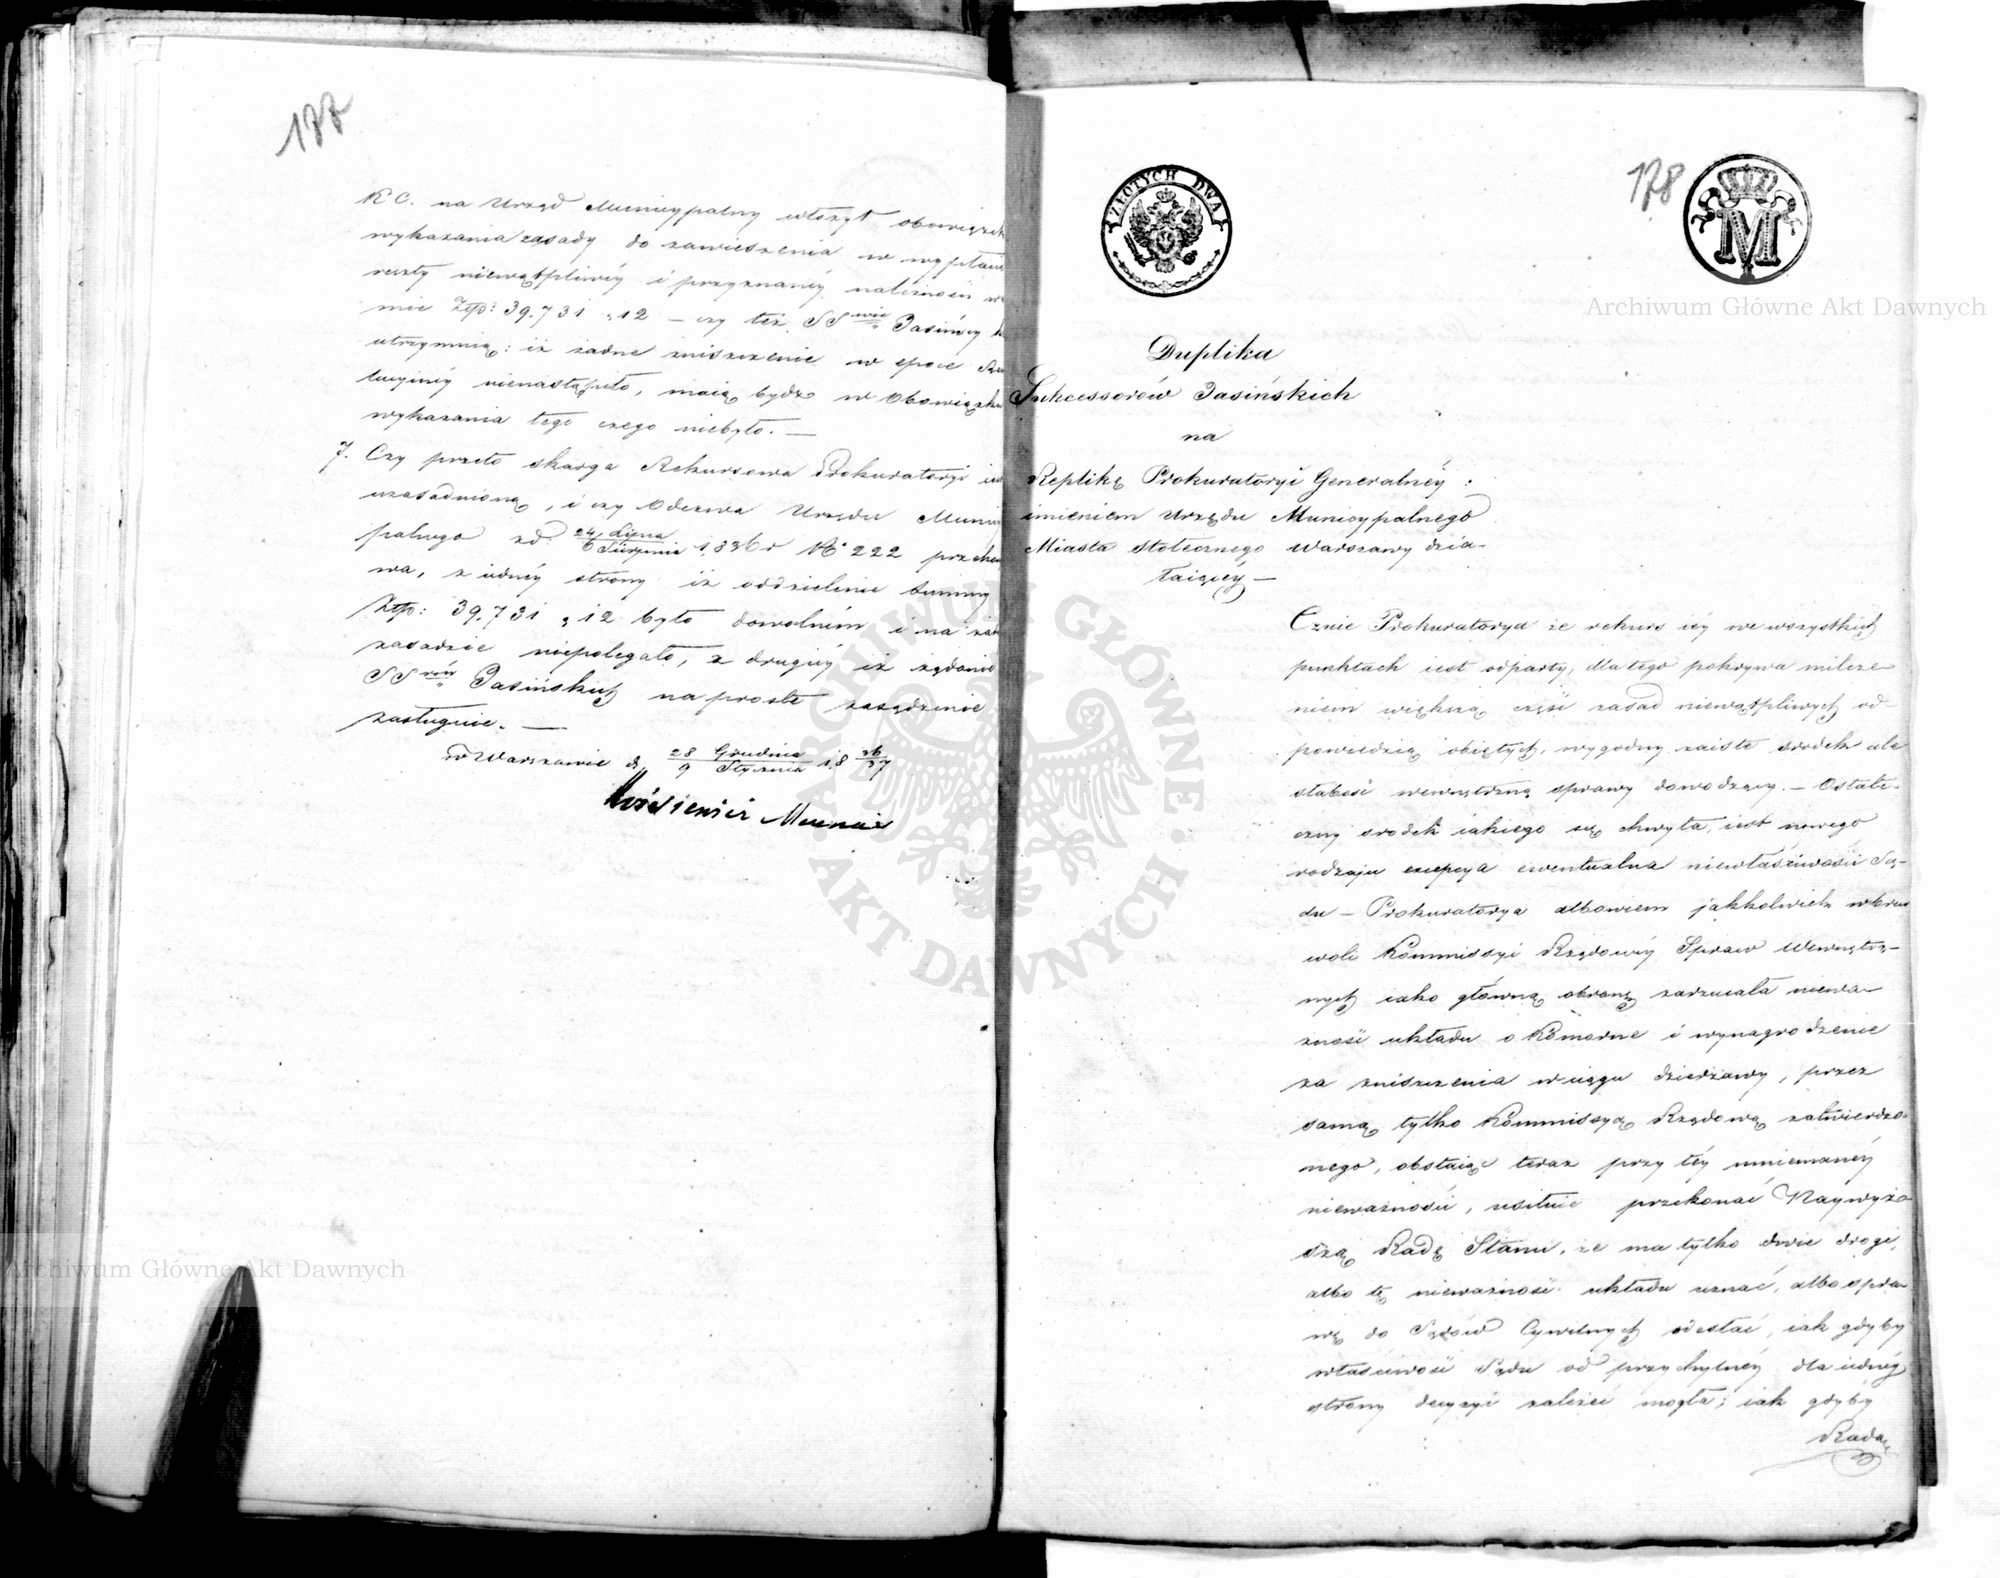 177
K C. na Urząd Municypalny włożył obowiązek
wykazania zasady do zawieszenia w wypłacie
reszty niewątpliwéy i przyznanéy należności w
mie Złp: 39.731 „ 12 – czy też SSrowie Jasińscy
utrzymuią: iż żadne zniszczenie w epoce Rewo
lucyinéy nienastąpiło, maią bydź w Obowiązku
wykazania tego czego niebyło. —
7. Czy przeto skarga Rekursowa Prokuratoryi iest
uzasadnioną, i czy Odezwa Urzędu Munic
palnego zd. 24 Lipca / 6 Sierpnia 1836 r No 222 przeko
wa, z iednéy strony iż oddzielenie summy
Złp: 39.731 „ 12 było dowolném i na żad
zasadzie niepolegało, z drugiéy iż żądanie
SSrów Jasińskich na proste zasądzenie
zasługuie. —
w Warszawie d. 28 Grudnia / 9 Stycznia 18 36/37
178
ZŁOTYCH DWA
M
Duplika
Sukcessorów Jasińskich
na
Replikę Prokuratoryi Generalnéy:
imieniem Urzędu Municypalnego
Miasta Stołecznego Warszawy dzia-
łaiącéy —
Czuie Prokuratorya że rekurs iéy we wszystkich
punktach iest odparty, dla tego pokrywa milcze-
niem większą część zasad niewątpliwych od-
powiedzią obiętych, wygodny zaiste srodek ale
słabość wewnętrzną sprawy dowodzący. — Ostate-
czny srodek iakiego się chwyta, iest nowego
rodzaju excepcya ewentualna niewłaściwości Są-
du — Prokuratorya albowiem jakkolwiek wbrew
woli Kommissyi Rządowéy Spraw Wewnętrz-
nych iako główną obronę zarzucała niewa-
żność układu o Komorne i wynagrodzenie
za zniszczenia w ciągu dzierżawy, przez
samą tylko Kommissyą Rządową zatwierdzo-
nego, obstaiąc teraz przy téy mniemanéy
nieważności, usiłuie przekonać Naywyż-
szą Radę Stanu, że ma tylko dwie drogi,
albo tę nieważność układu uznać, albo spra-
wę do Sądów Cywilnych odesłać, iak gdyby
właściwość Sądu od przychylnéy dla iednéy
strony decyzyi zależeć mogła; iak gdyby
Rada
Archiwum Główne Akt Dawnych
Archiwum Główne Akt Dawnych
ARCHIWUM GŁÓWNE AKT DAWNYCH